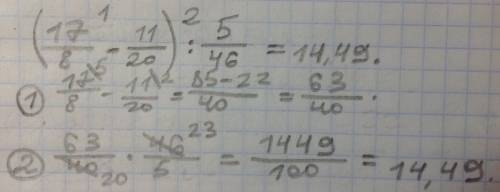 (17/8 ¹ - 11/20) ² : 5/46 = 14,49.
① 17\5/8 - 11\2/20 = 85-22/40 = 63/40 .
② 63/40 20 · 46 23/5 = 1449/100 = 14,49.